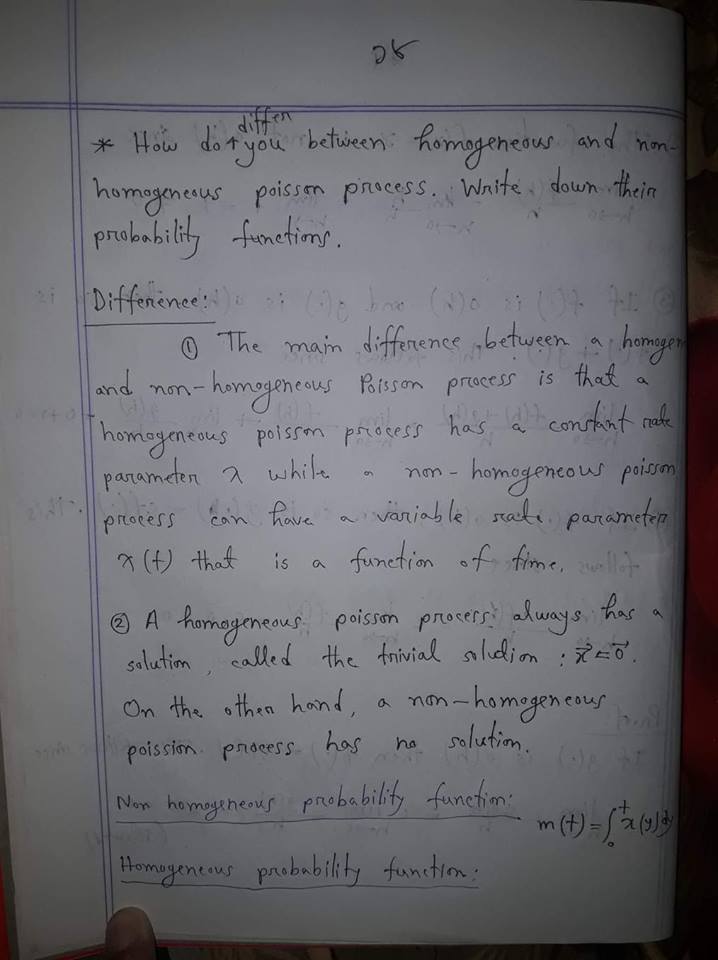 28
differ
* How do you between homogeneous and non-
homogeneous poisson process. Write down their
probability functions.
Difference:
① The main difference between a homogen
and non-homogeneous Poisson process is that a
homogeneous poisson process has a constant rate
parameter λ while a non-homogeneous poisson
process can have a variable rate parameter
λ(t) that is a function of time.
② A homogeneous poisson process always has a
solution, called the trivial solution : x⃗ = 0⃗.
On the other hand, a non-homogeneous
poission process has no solution.
Non homogeneous probability function:
m(t) = ∫₀ᵗ λ(y) dy
Homogeneous probability function: